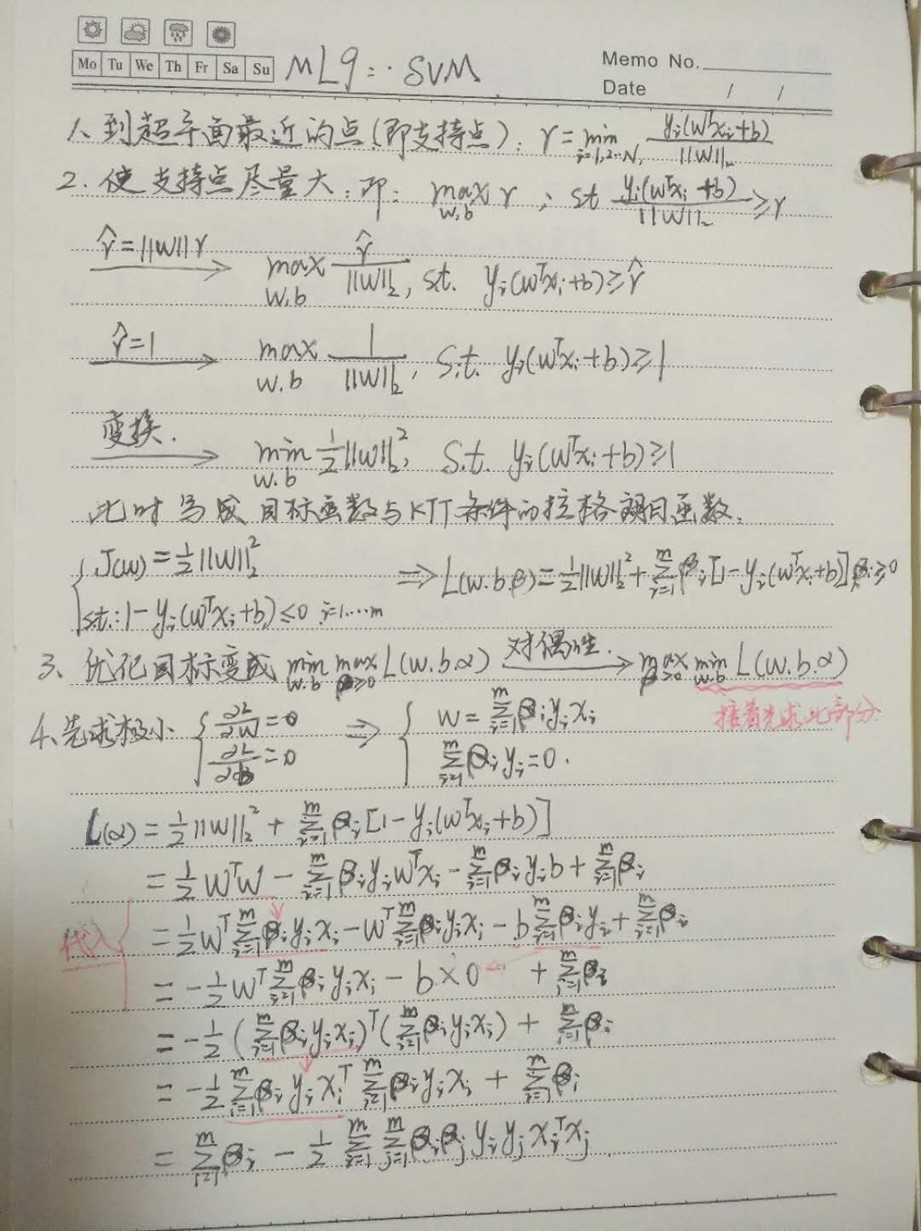 Mo Tu We Th Fr Sa Su ML9: SVM Memo No.
Date / /
1. 到超平面最近的点(即支持点): γ = min_{i=1,2…N} y_i(w^T x_i + b) / ||w||_2
2. 使支持点尽量大: 即: max_{w,b} γ, st y_i(w^T x_i + b) / ||w||_2 ≥ γ
γ̂ = ||w||γ → max_{w,b} γ̂ / ||w||_2, s.t. y_i(w^T x_i + b) ≥ γ̂
γ̂ = 1 → max_{w,b} 1 / ||w||_2, s.t. y_i(w^T x_i + b) ≥ 1
变换. → min_{w,b} ½||w||_2^2, s.t. y_i(w^T x_i + b) ≥ 1
此时写成目标函数与KTT条件的拉格朗日函数.
J(w) = ½||w||_2^2
st: 1 - y_i(w^T x_i + b) ≤ 0 i=1,…m ⇒ L(w.b.β) = ½||w||_2^2 + Σ_{i=1}^m β_i[1 - y_i(w^T x_i + b)] β_i ≥ 0
3. 优化目标变成 min_{w.b} max_{β≥0} L(w.b.α) 对偶性. → max_{β≥0} min_{w.b} L(w.b.α)
接着先求此部分
4. 先求极小 { ∂L/∂w = 0 ⇒ { w = Σ_{i=1}^m β_i y_i x_i
∂L/∂b = 0 Σ_{i=1}^m β_i y_i = 0.
L(α) = ½||w||_2^2 + Σ_{i=1}^m β_i[1 - y_i(w^T x_i + b)]
= ½ w^T w - Σ_{i=1}^m β_i y_i w^T x_i - Σ_{i=1}^m β_i y_i b + Σ_{i=1}^m β_i
代入 = ½ w^T Σ_{i=1}^m β_i y_i x_i - w^T Σ_{i=1}^m β_i y_i x_i - b Σ_{i=1}^m β_i y_i + Σ_{i=1}^m β_i
= -½ w^T Σ_{i=1}^m β_i y_i x_i - b × 0 + Σ_{i=1}^m β_i
= -½ (Σ_{i=1}^m β_i y_i x_i)^T (Σ_{i=1}^m β_i y_i x_i) + Σ_{i=1}^m β_i
= -½ Σ_{i=1}^m β_i y_i x_i^T Σ_{i=1}^m β_i y_i x_i + Σ_{i=1}^m β_i
= Σ_{i=1}^m β_i - ½ Σ_{i=1}^m Σ_{j=1}^m β_i β_j y_i y_j x_i^T x_j